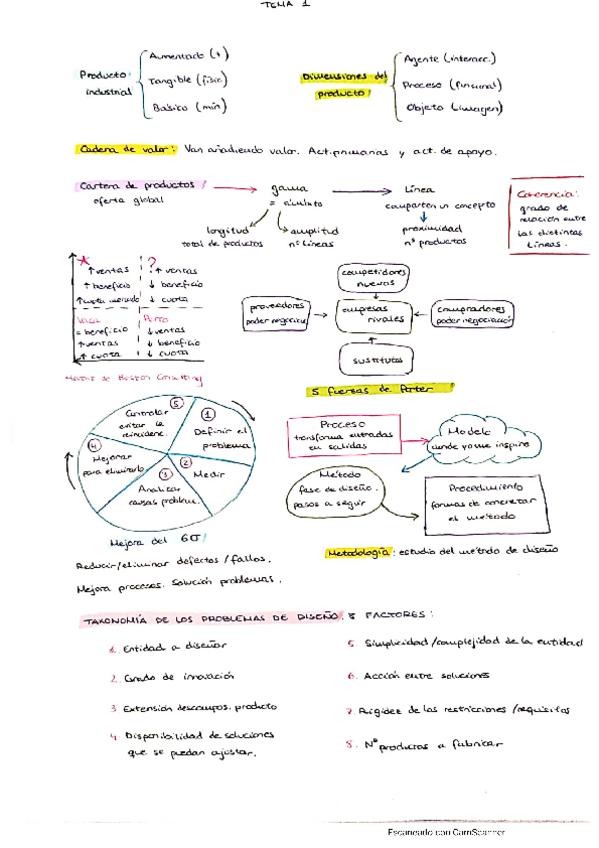 TEMA 1
Producto industrial
Aumentado (+)
Tangible (físic)
Básico (mín)
Dimensiones del producto:
Agente (interacc.)
Proceso (funcional)
Objeto (imagen)
Cadena de valor: Van añadiendo valor. Act. primarias y act. de apoyo.
Cartera de productos /
oferta global
gama
longitud
total de productos
amplitud
nº líneas
Línea
comparten un concepto
proximidad
nº productos
Coherencia:
grado de
relación entre
las distintas
líneas.
↑ ventas
↑ beneficio
↑ cuota mercado
?
↑ ventas
↓ beneficio
↓ cuota
Vaca
= beneficio
↑ ventas
↑ cuota
Perro
↓ ventas
↓ beneficio
↓ cuota
Matriz de Boston Consulting
competidores
nuevos
proveedores
empresas
rivales
compradores
poder negociación
sustitutos
5 fuerzas de Porter
① Definir el
problema
② Medir
③ Analizar
causas problem.
④ Mejorar
para eliminarlo
⑤ Controlar
evitar la
reincidenc.
Mejora del 6σ
Reducir/eliminar defectos / fallos.
Mejora procesos. Solución problemas.
Proceso
transforma entradas
en salidas
Modelo
donde yo me inspiro
Método
fase de diseño.
pasos a seguir
Procedimiento
formas de concretar
el método
Metodología: estudio del método de diseño
TAXONOMÍA DE LOS PROBLEMAS DE DISEÑO. 8 FACTORES:
1. Entidad a diseñar
2. Grado de innovación
3 Extensión descompos. producto
4 Disponibilidad de soluciones
que se puedan ajustar.
5. Simplicidad/complejidad de la entidad
6. Acción entre soluciones
7. Rigidez de las restricciones /requisitos
8. Nº productos a fabricar
Escaneado con CamScanner